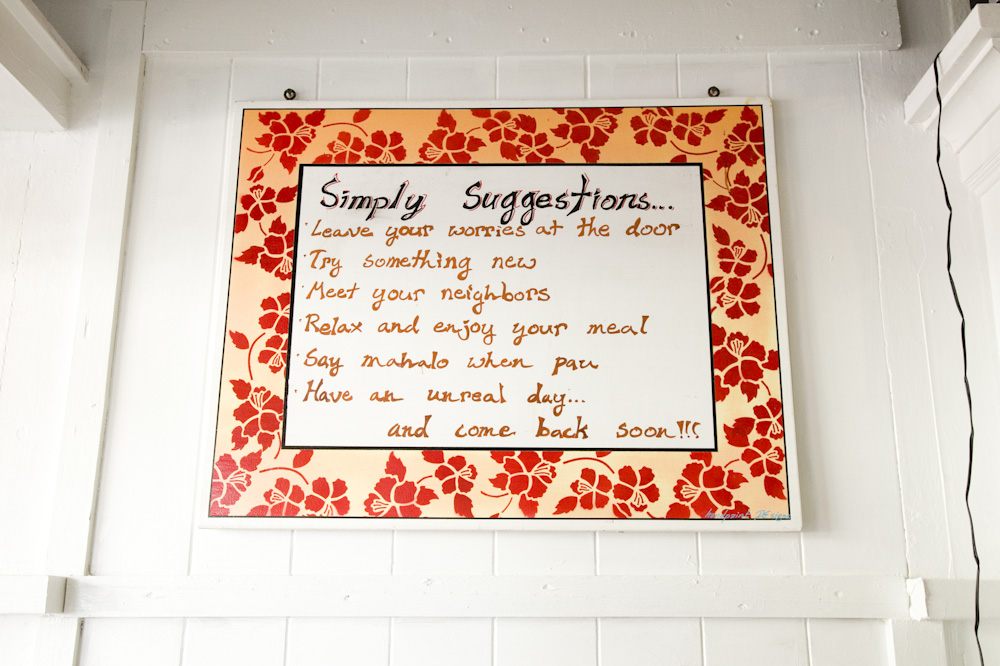 Simply Suggestions...
· Leave your worries at the door
· Try something new
· Meet your neighbors
· Relax and enjoy your meal
· Say mahalo when pau
· Have an unreal day...
and come back soon!!!